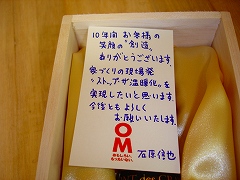 10年間お客様の
笑顔の"創造"
ありがとうございます。
家づくりの現場発
"ストップ・ザ・温暖化"を
実現したいと思います。
今後ともよろしく
お願いいたします。
OM
石原信也